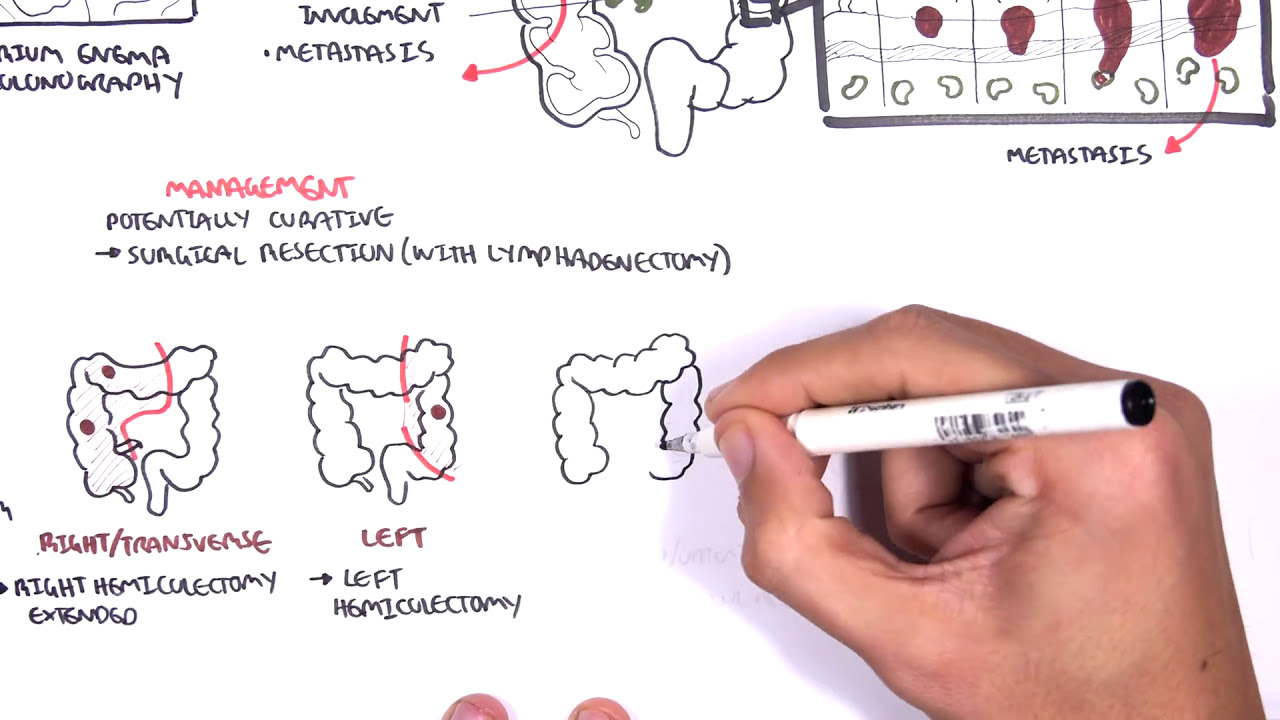 INVOLEMENT
• METASTASIS
RIUM ENGMA
OLONOGRAPHY
METASTASIS
MANAGEMENT
POTENTIALLY CURATIVE
→ SURGICAL RESECTION (WITH LYMPHADENECTOMY)
RIGHT/TRANSVERSE
→ RIGHT HEMICOLECTOMY
EXTENDED
LEFT
→ LEFT
HEMICOLECTOMY